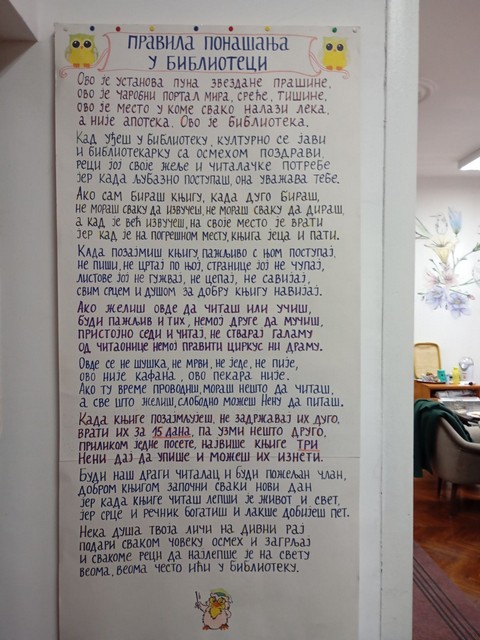 ПРАВИЛА ПОНАШАЊА
У БИБЛИОТЕЦИ
Ово је установа пуна звездане прашине,
ово је чаробни портал мира, среће, тишине,
ово је место у коме свако налази лека,
а није апотека. Ово је библиотека.
Кад уђеш у библиотеку, културно се јави
и библиотекарку са осмехом поздрави,
реци јој своје жеље и читалачке потребе
јер када љубазно поступаш, она уважава тебе.
Ако сам бираш књигу, када дуго бираш,
не мораш сваку да извучеш, не мораш сваку да дираш,
а кад је већ извучеш, на своје место је врати
јер кад је на погрешном месту, књига јеца и пати.
Када позајмиш књигу, пажљиво с њом поступај,
не пиши, не цртај по њој, странице јој не чупај,
листове јој не гужвај, не цепај, не савијај,
свим срцем и душом за добру књигу навијај.
Ако желиш овде да читаш или учиш,
буди пажљив и тих, немој друге да мучиш,
пристојно седи и читај, не стварај галаму
од читаонице немој правити циркус ни драму.
Овде се не шушка, не мрви, не једе, не пије,
ово није кафана, ово пекара није.
Ако ту време проводиш, мораш нешто да читаш,
а све што желиш, слободно можеш Нену да питаш.
Када књиге позајмљујеш, не задржавај их дуго,
врати их за 15 дана, па узми нешто друго,
приликом једне посете, највише књиге ТРИ
Нени дај да упише и можеш их изнети.
Буди наш драги читалац и буди пожељан члан,
добром књигом започни сваки нови дан
јер када књиге читаш лепши је живот и свет,
јер срце и речник богатиш и лакше добијеш пет.
Нека душа твоја личи на дивни рај
подари сваком човеку осмех и загрљај
и свакоме реци да најлепше је на свету
веома, веома често ићи у библиотеку.